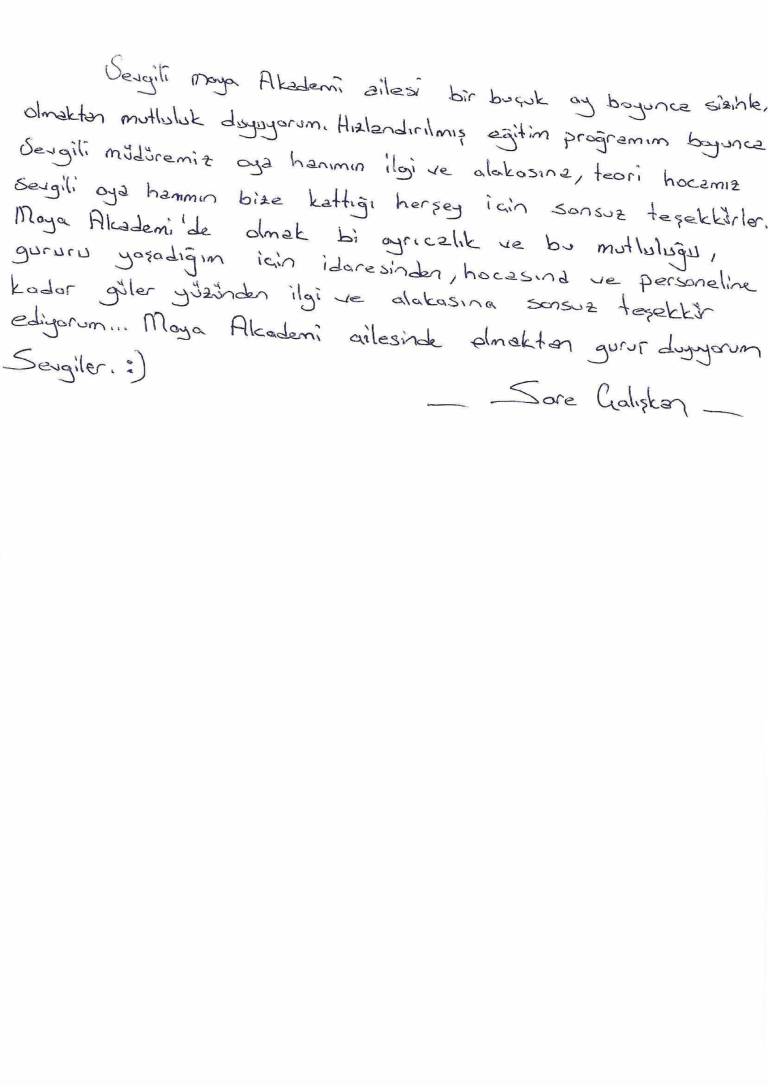 Sevgili maya Akademi ailesi bir buçuk ay boyunca sizinle,
olmaktan mutluluk duyuyorum. Hızlandırılmış eğitim programım boyunca
Sevgili müdüremiz aya hanımın ilgi ve alakasına, teori hocamız
Sevgili aya hanımın bize kattığı herşey için sonsuz teşekkürler.
Maya Akademi'de olmak bi ayrıcalık ve bu mutluluğu,
gururu yaşadığım için idaresinden, hocasınd ve personeline
kadar güler yüzünden ilgi ve alakasına sonsuz teşekkür
ediyorum... Maya Akademi ailesinde olmaktan gurur duyuyorum
Sevgiler. :)
— Sare Çalışkan —